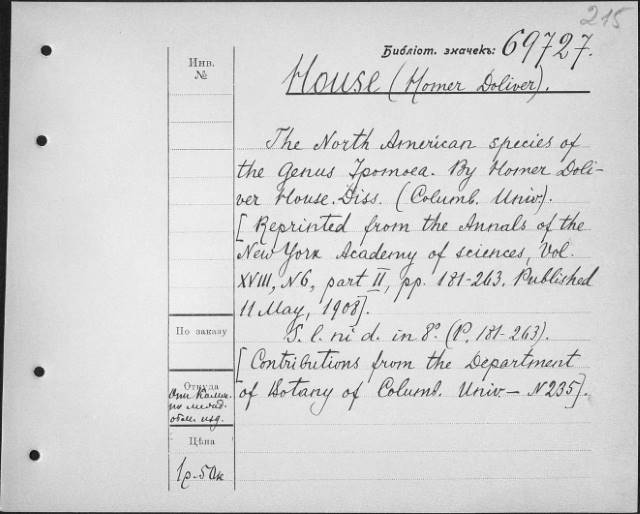 215
Библіот. значекъ: 69727.
Инв.
№
House (Homer Doliver).
The North American species of
the genus Ipomoea. By Homer Doli-
ver House. Diss. (Columb. Univ.).
[Reprinted from the Annals of the
New York Academy of sciences, Vol.
XVIII, N6, part II, pp. 181-263. Published
11 May, 1908].
S. l. ni d. in 8º. (P. 181-263).
[Contributions from the Department
of Botany of Columb. Univ. — N 235].
По заказу
Откуда
по
изд.
Цѣна
1р.50к